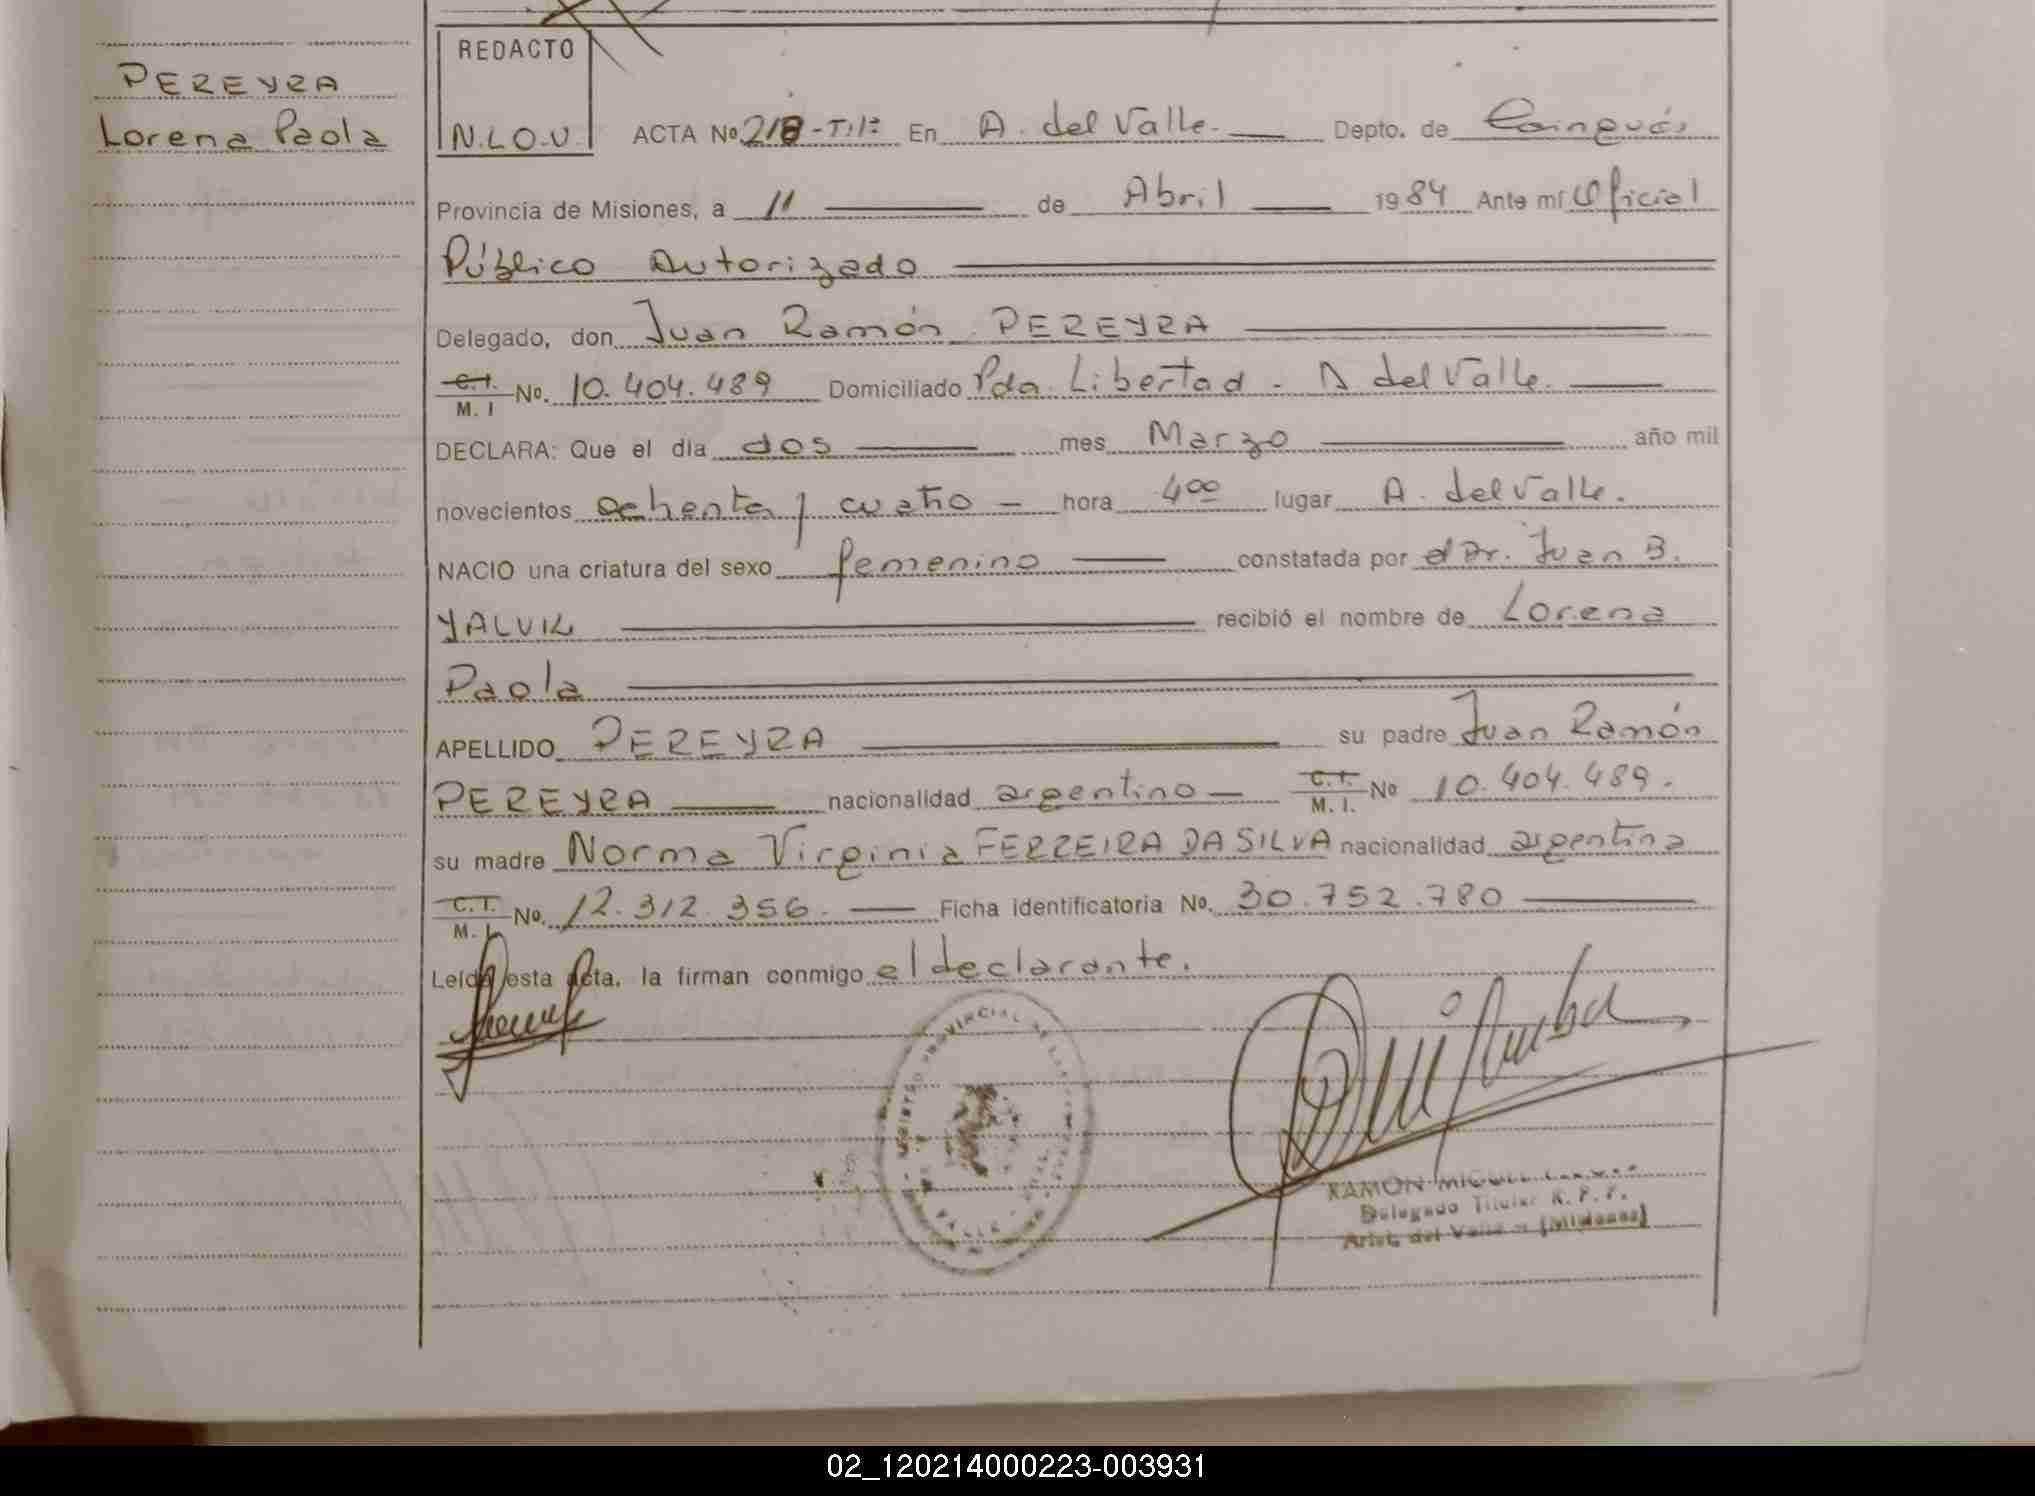 PEREYRA
Lorena Paola
REDACTO
N.L.O.V.
ACTA No 218 - T:1º En A. del Valle. Depto. de Cainguás
Provincia de Misiones, a 11 de Abril 1984 Ante mí Oficial
Público Autorizado
Delegado, don Juan Ramón PEREYRA
C.I. M. I No. 10.404.489 Domiciliado Pda. Libertad - A del Valle.
DECLARA: Que el día dos mes Marzo año mil
novecientos ochenta y cuatro - hora 4oo lugar A. del Valle.
NACIO una criatura del sexo femenino constatada por el Dr. Juan B.
recibió el nombre de Lorena
Paola
APELLIDO PEREYRA su padre Juan Ramón
PEREYRA nacionalidad argentino - C.I. M. I. No 10.404.489.
su madre Norma Virginia FERREIRA DA SILVA nacionalidad argentina
C.I. M. I. No. 12.312.356. Ficha identificatoria No. 30.752.780
Leída esta acta, la firman conmigo el declarante.
RAMON MIGUEL
Delegado Titular R. P. P.
Arist. del Valle - (Misiones)
02_120214000223-003931